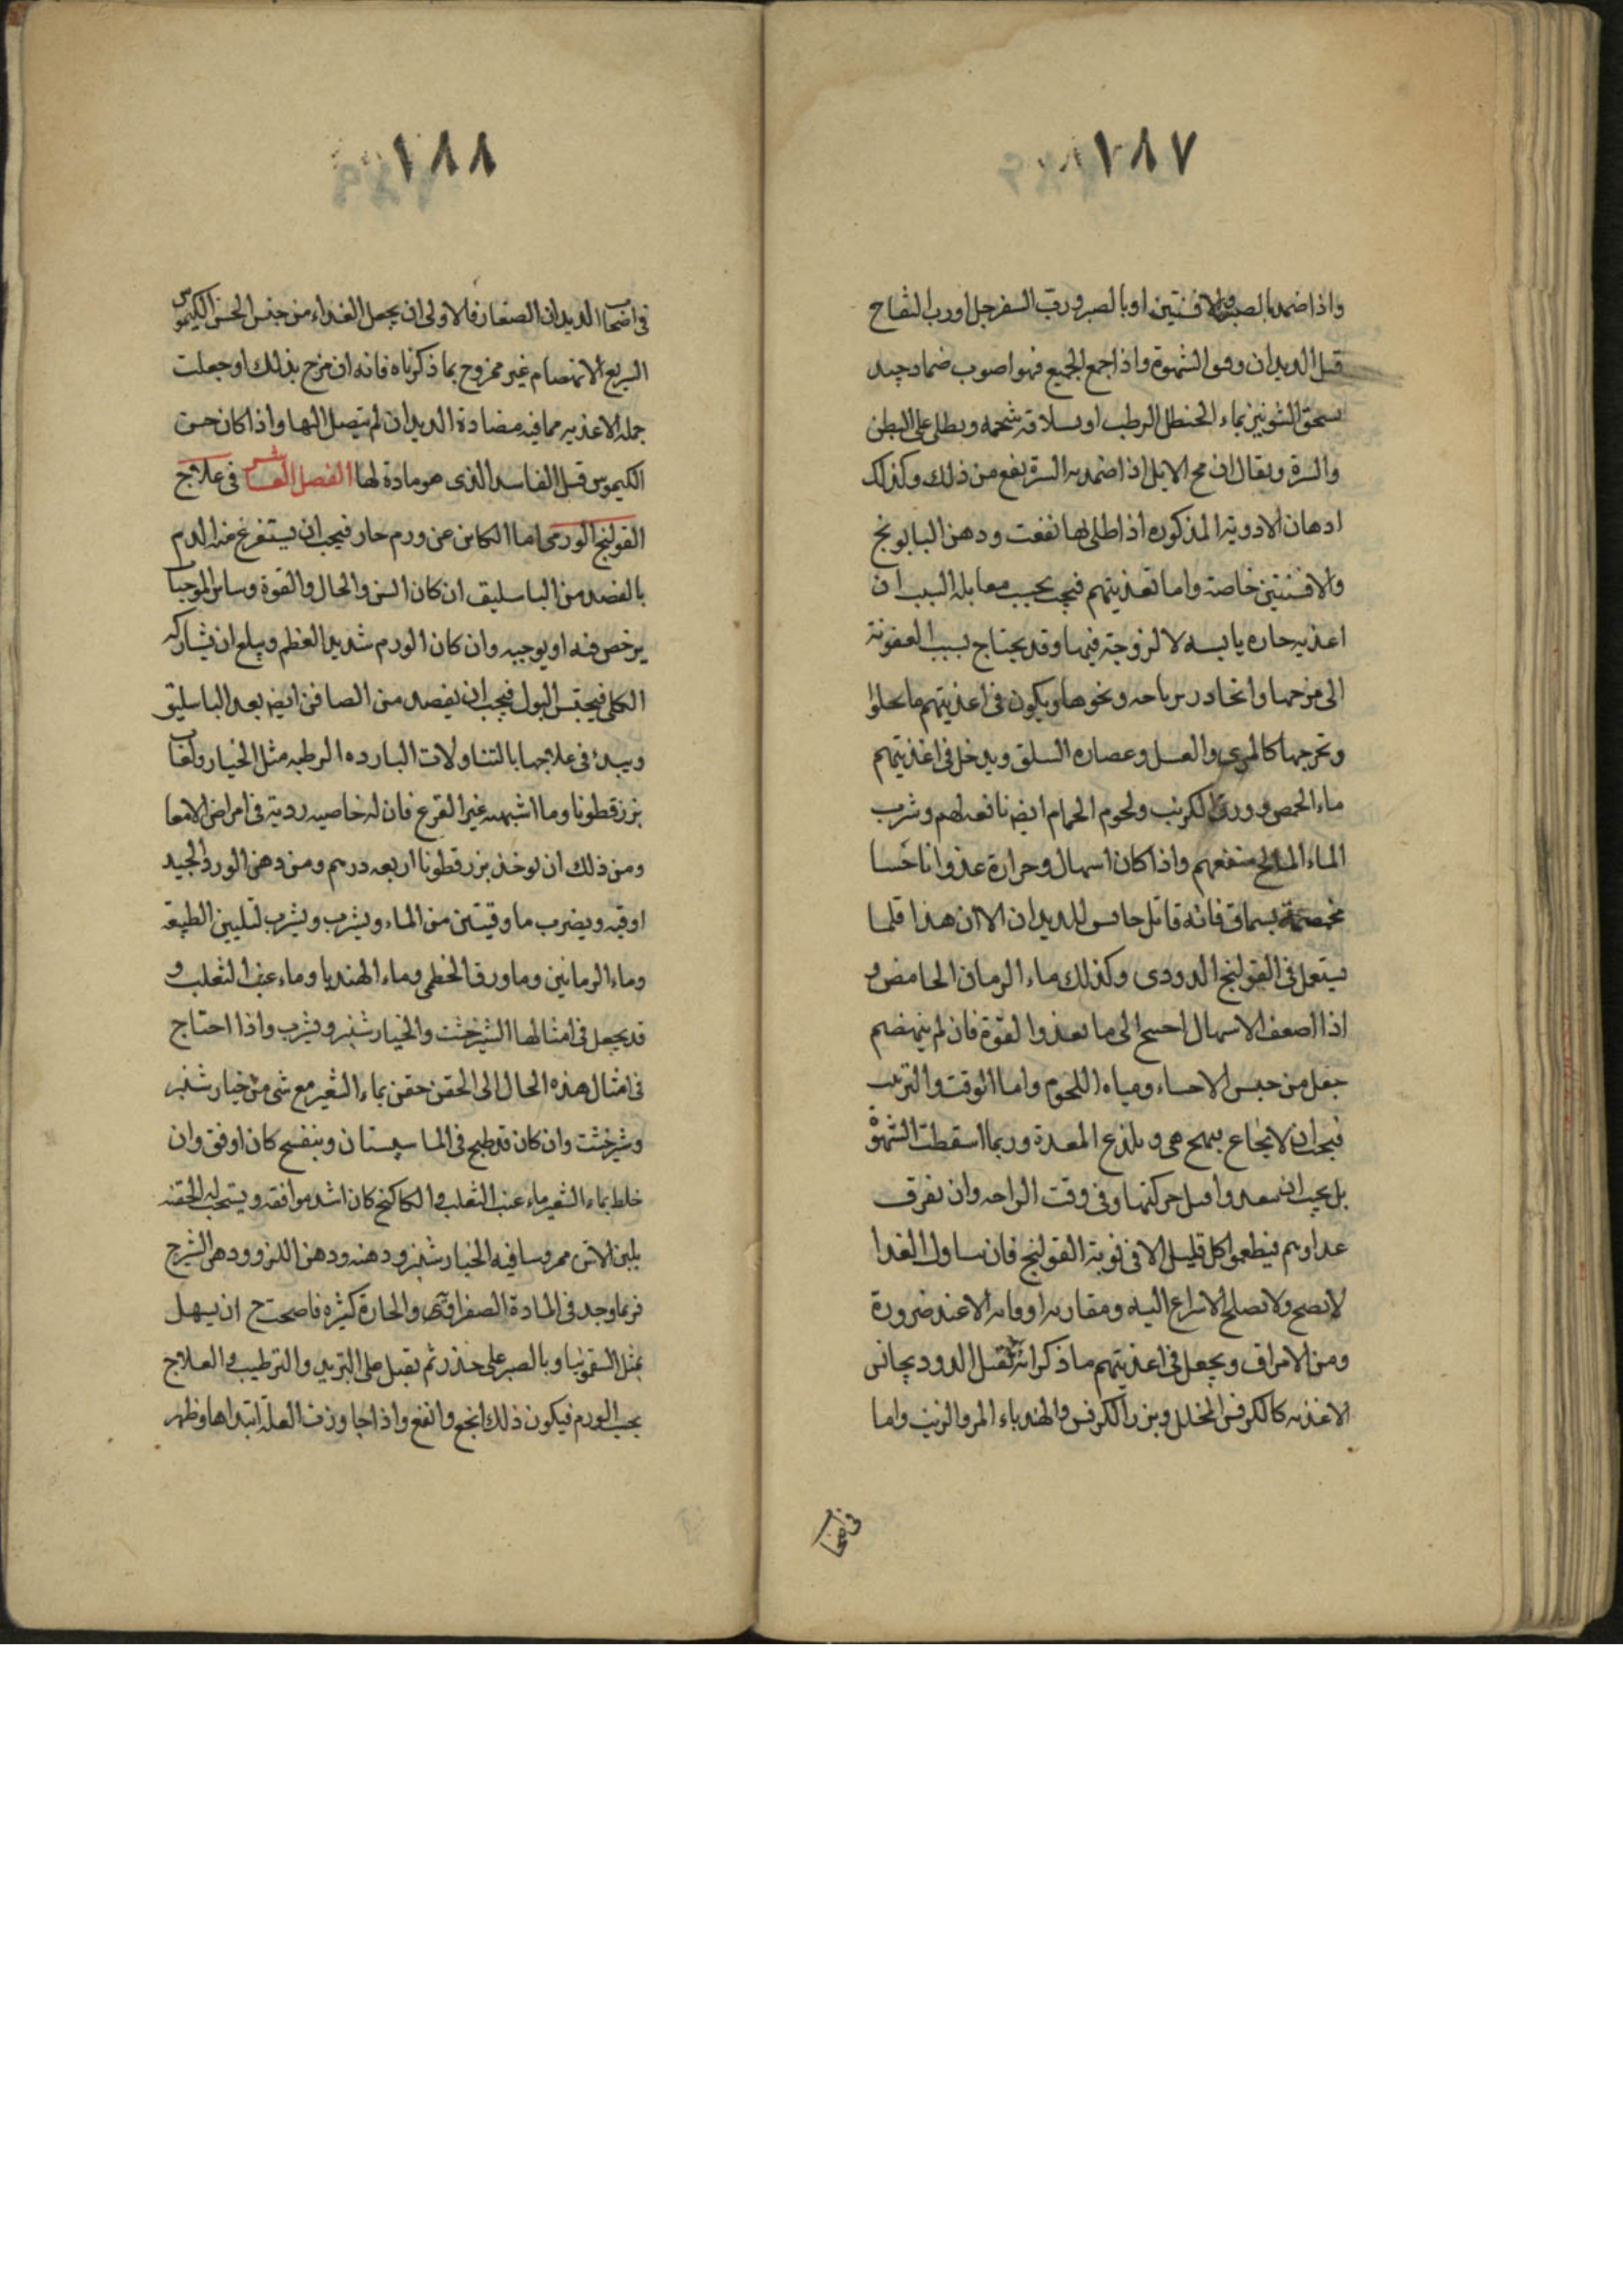 ١٨٧
واذا ضمد بالصبر والافسنتين او بالصبر ورب السفرجل او رب التفاح
قتل الديدان وفتق الشهوة واذا جمع الجميع فهو اصوب ضماد جيد
يسحق الشونيز بماء الحنظل الرطب او بسلاقه شحمه ويطلى على البطن
والسرة ويقال ان مخ الايل اذا ضمد به السرة نفع من ذلك وكذلك
ادهان الادوية المذكوره اذا طلى بها نفعت ودهن البابونج
والافسنتين خاصة واما تغذيتهم فيجب بحسب مقابلة السبب ان
اغذيه حاره يابسه لا لزوجة فيها وقد يحتاج بسبب العفونة
الى مزجها ونحوها ويكون فى اغذيتهم ما يجلوا
وتخرجها كالمرى والعسل وعصاره السلق ويدخل فى اغذيتهم
ماء الحمص وورق الكرنب ولحوم الحمام ايض نافعه لهم وشرب
الماء المالح ينفعهم واذا كان اسهال وحرارة غذوا باحسا
محمضة بسماق فانه قاتل حابس للديدان الا ان هذا قلما
يستعمل فى القولنج الدودى وكذلك ماء الرمان الحامض و
اذا اضعف الاسهال احتيج الى ما يغذوا القوة فان لم ينهضم
جعل من جنس الاحساء ومياه اللحوم واما الوقت والترتيب
فيجب ان لا يجاع فيهيج هى ويلذع المعدة وربما اسقطت الشهوة
بل يجب ان يتغدوا قبل حركتها وفى وقت الراحه وان تفرق
غذاوهم فيطعموا كل قليل الا فى نوبة القولنج فان تناول الغذا
لا يصح ولا يصلح الاسراع اليه ومقاربة اوقاته الا عند ضرورة
ومن الاطراف ويجعل فى اغذيتهم ما ذكر انه يقتل الدود يجانس
الاغذيه كالكرفس المخلل وبزر الكرفس والهندباء المر والزيت واما
فى اصحا
١٨٨
فى اصحاب الديدان الصغار فالاولى ان يجعل الغداء من جنس الحسن الكيموس
السريع الانهضام غير ممزوج بما ذكرناه فانه ان مزج بذلك او جعلت
جمله الاغذيه مما فيه مضادة الديدان لم يتصل اليها واذا كان حسن
الكيموس قتل الفاسد الذى هو مادة لها الفصل العاشر فى علاج
القولنج الورمى اما الكاين عن ورم حار فيجب ان يستفرغ منه الدم
بالفصد من الباسليق ان كان السن والحال والقوة وساير الموجبات
يرخص فيه او يوجبه وان كان الورم شديد العظم ويبلغ ان يشاركه
الكلى فيحتبس البول فيجب ان يفصد من الصافن ايض بعد الباسليق
ويبدئ فى علاجها بالتناولات البارده الرطبه مثل الخيار ولعاب
بزرقطونا وما اشبهه غير القرع فان له خاصيه ردية فى امراض الامعا
ومن ذلك ان يوخذ بزرقطونا اربعه درهم ومن دهن الورد الجيد
اوقيه ويضرب ما وقيتين من الماء ويشرب ويشرب لتليين الطبيعة
وماء الرمانين وما ورق الخطمى وماء الهنديا وماء عنب الثعلب و
قد يجعل فى امثالها الشيرخشت والخيارشنبر ويشرب واذا احتاج
فى امثال هذه الحال الى الحقن حقن بماء الشعير مع شى من خيارشنبر
وشيرخشت وان كان قد طبخ فى الما سبستان وبنفسج كان اوفق وان
خلط بماء الشعير ماء عنب الثعلب والكاكنج كان اشد موافقه ويستحب له الحقنه
بلبن الاتن ممروسا فيه الخيارشنبر ودهنه ودهن اللوز ودهن الشيرج
فربما وجد فى المادة الصفراويه والحارة كثيره فاصحت ح ان يسهل
بمثل السقمونيا وبالصبر على حذر ثم يقبل على التبريد والترطيب والعلاج
بحسب الورم فيكون ذلك انجع وانفع واذا جاوزت العلة ابتداها وظهر